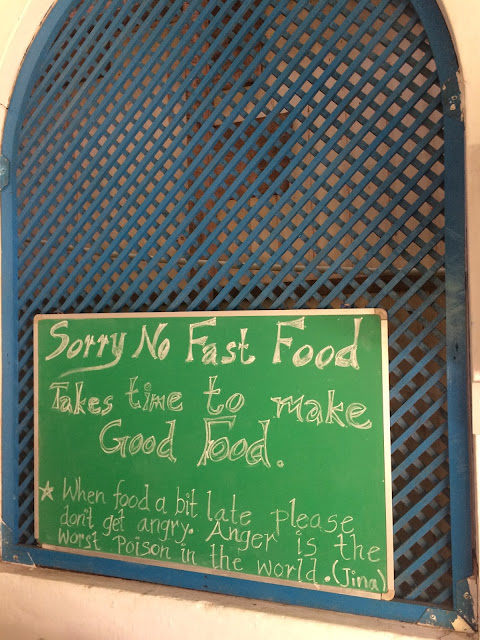 Sorry No Fast Food
Takes time to make
Good Food.
☆ When food a bit late please
don't get angry. Anger is the
worst Poison in the world. (Jina)